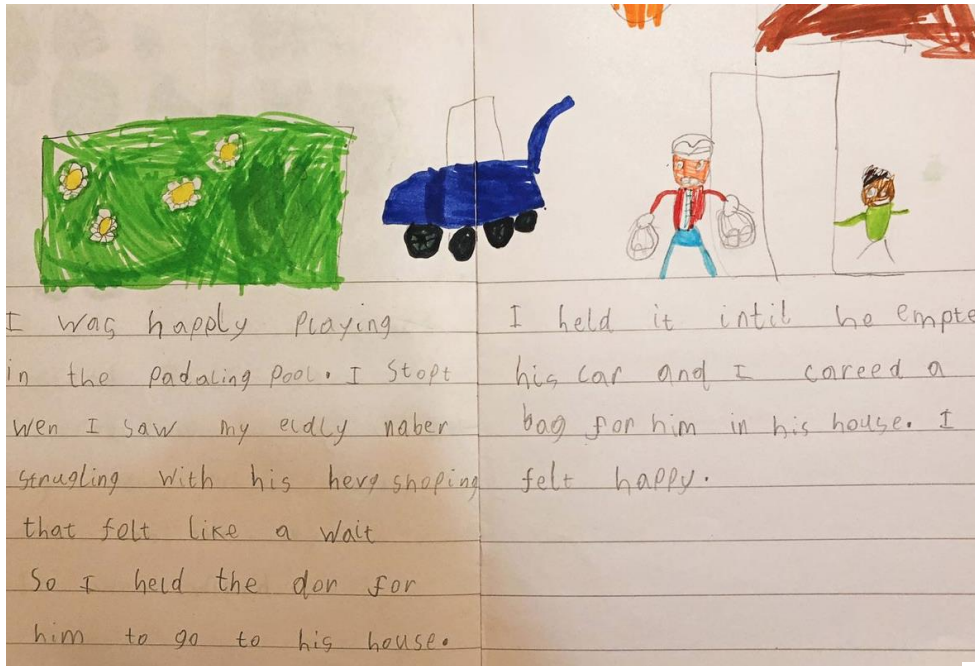 I was happly playing
in the padaling pool. I stopt
wen I saw my eldly naber
strugling with his hervy shoping
that folt like a wait
So I held the dor for
him to go to his house.
I held it intil he empte
his car and I careed a
bag for him in his house. I
felt happy.